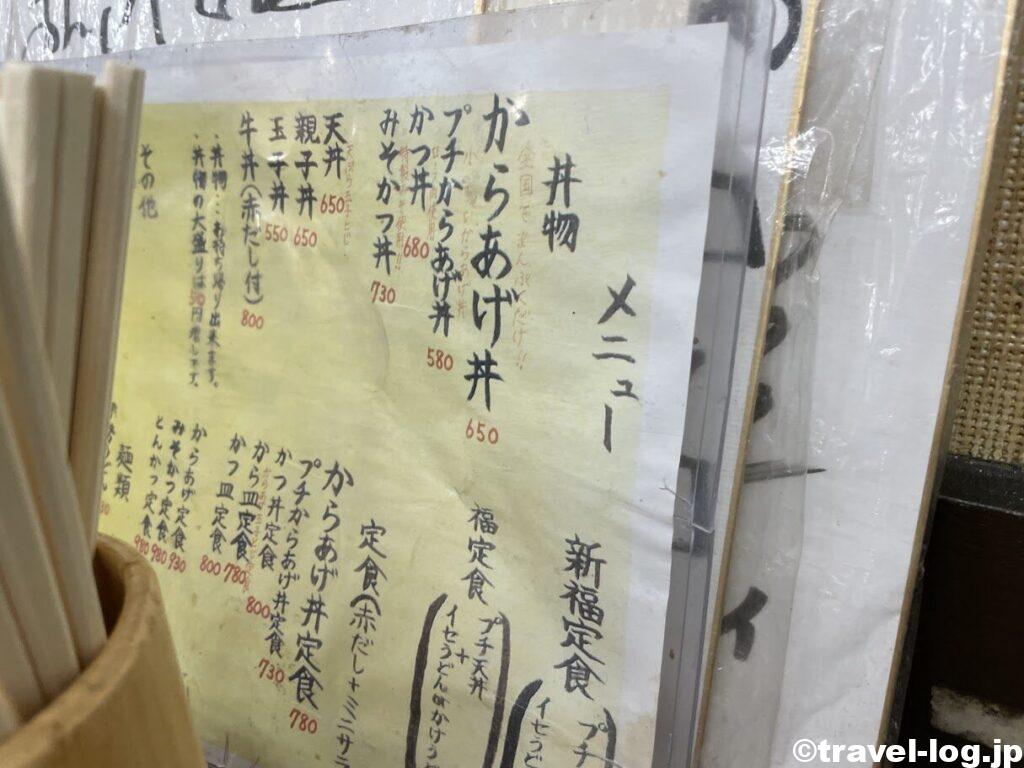 メニュー
丼物
全国でまんぷくだけ!!
からあげ丼 650
プチからあげ丼 580
かつ丼 680
みそかつ丼 730
天丼 650
親子丼 650
玉子丼 550
牛丼(赤だし付) 800
・丼物…お持ち帰り出来ます。
・丼物の大盛りは50円増しです。
その他
新福定食
プチ
イセうど
福定食
プチ天丼
+
イセうどんorかけう
定食(赤だし+ミニサラ
からあげ丼定食 780
プチからあげ丼定食 730
かつ丼定食 800
から皿定食 780
かつ皿定食 800
からあげ定食 930
みそかつ定食 980
とんかつ定食 980
麺類
イ
©travel-log.jp